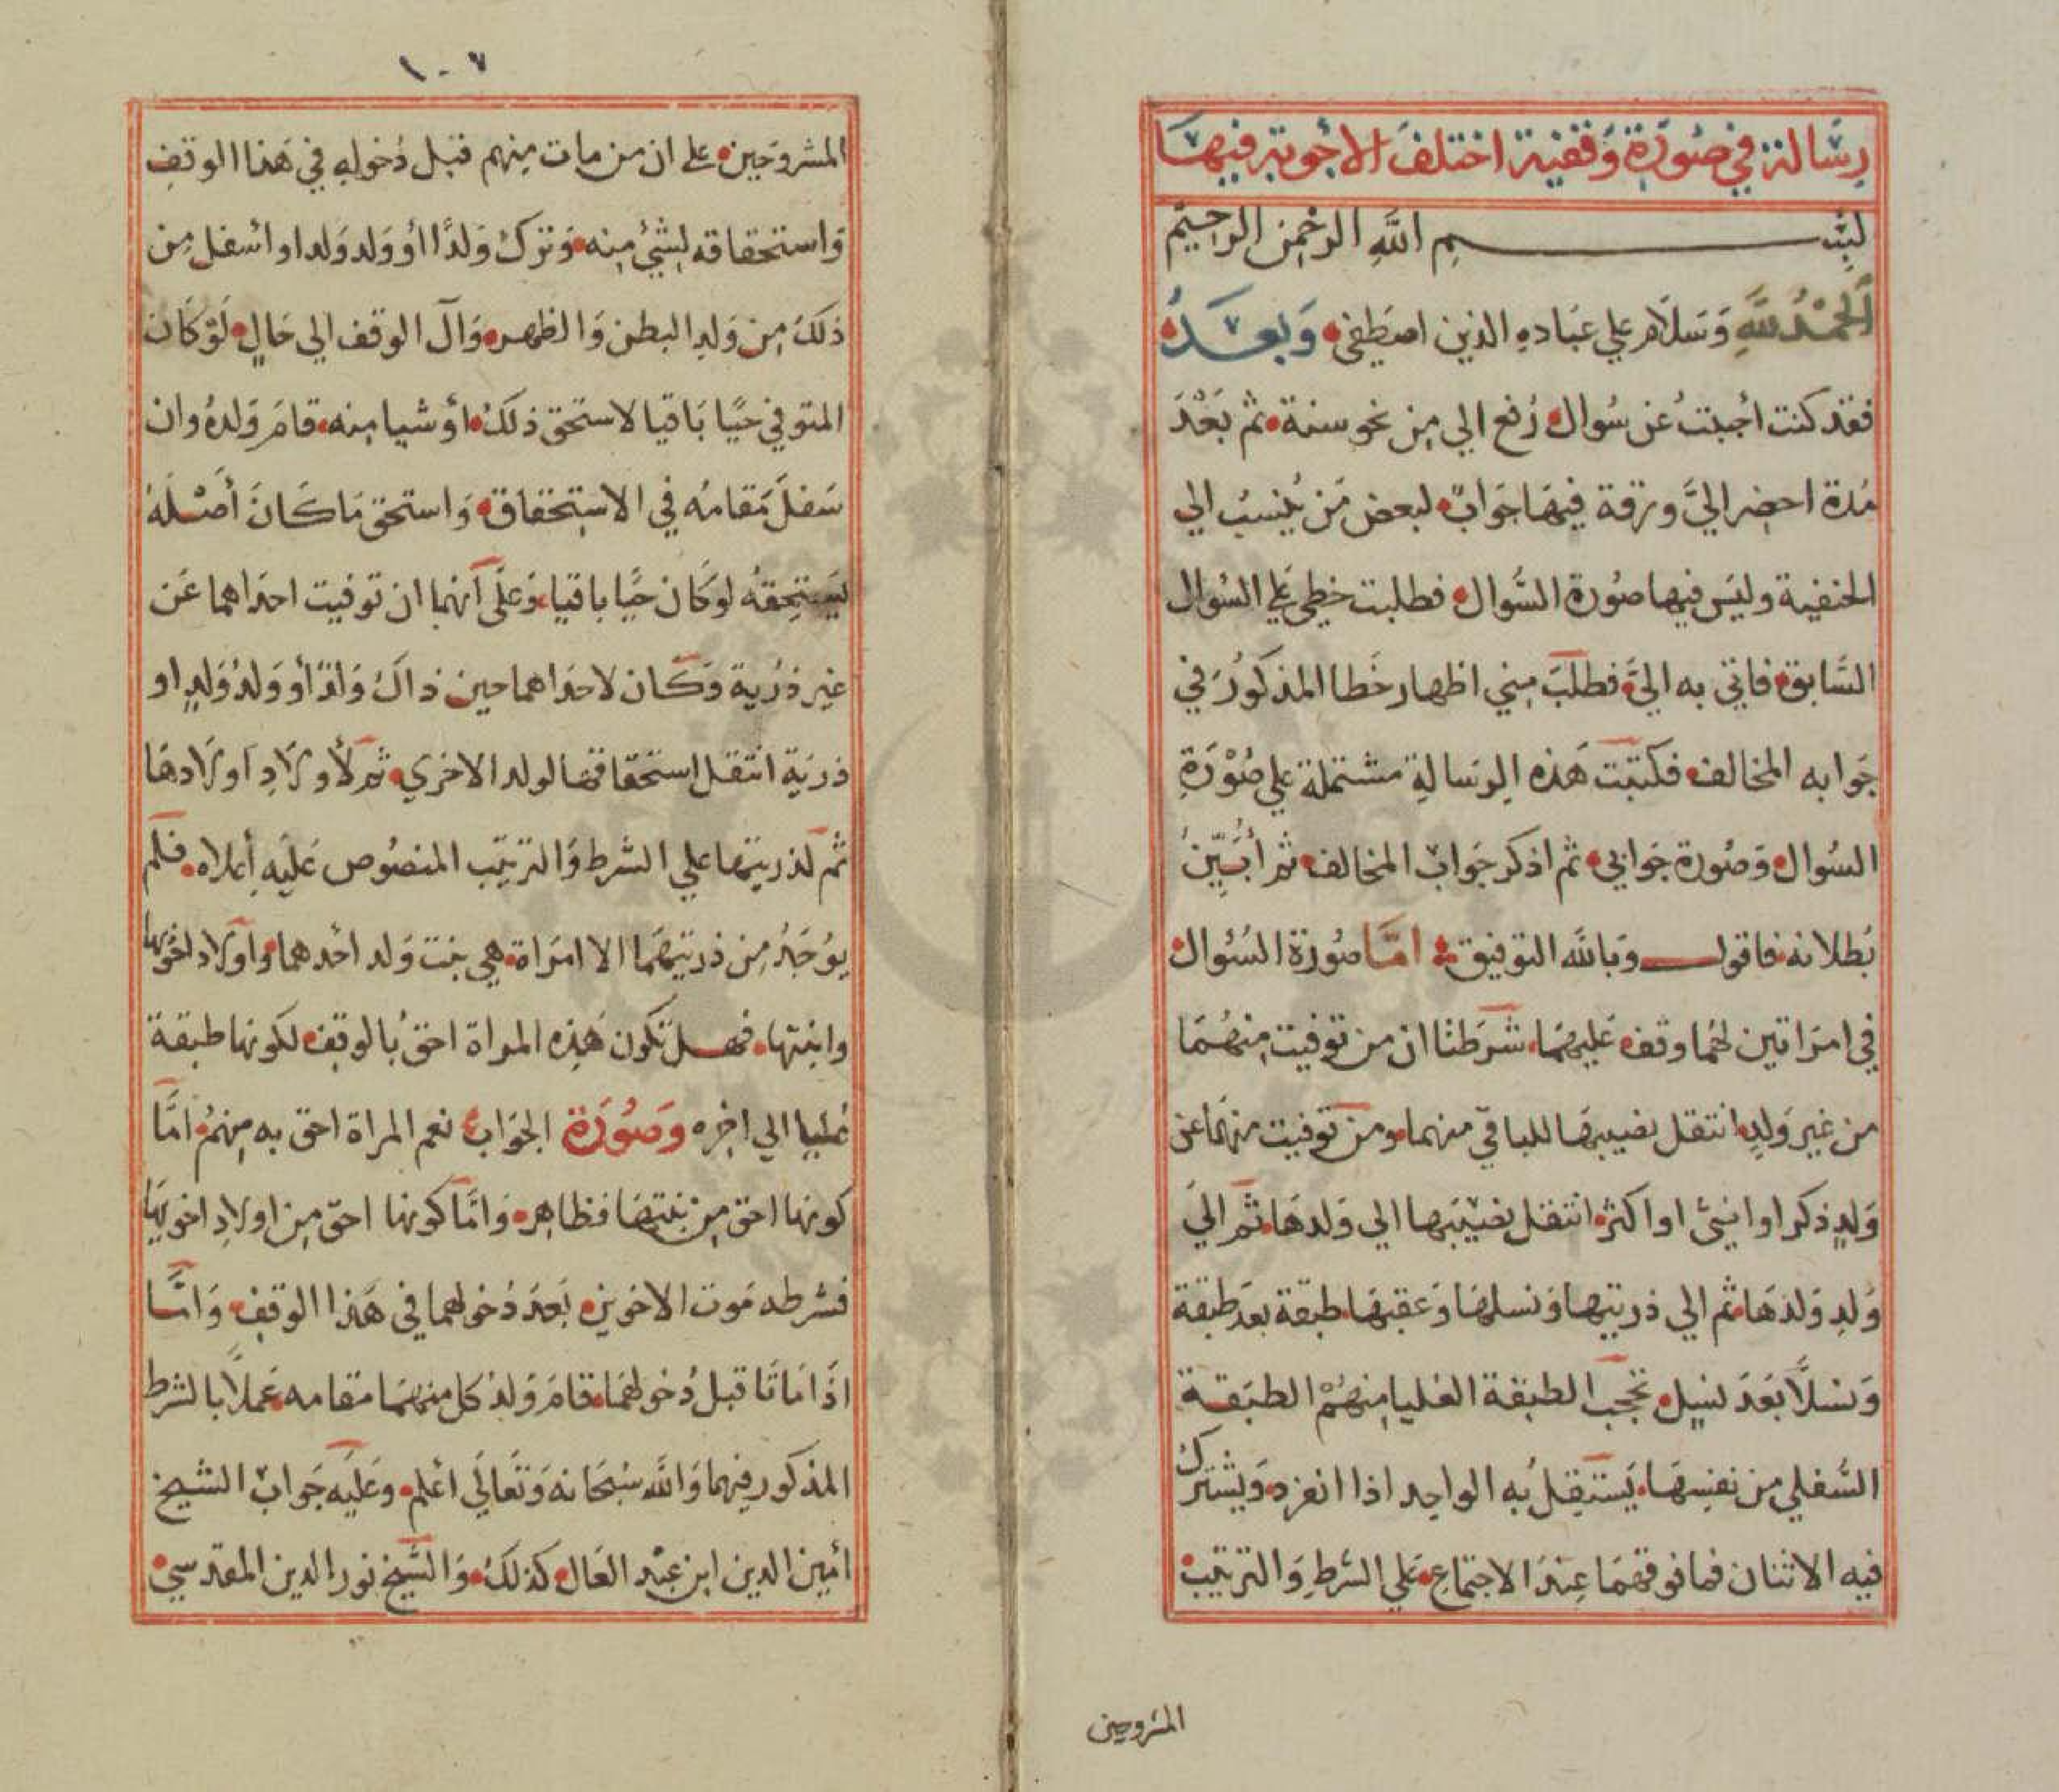 رسالة في صورة وقفية اختلف الأجوبة فيها
بسم الله الرحمن الرحيم
الحمد لله وسلام علي عباده الذين اصطفي وبعد
فقد كنت أجبت عن سوال رفع الي من نحو سنة ثم بعد
مدة احضر الي ورقة فيها جواب لبعض من ينسب الي
الحنفية وليس فيها صورة السوال فطلبت خطي علي السوال
السابق فاتي به الي فطلب مني اظهار خطا المذكور في
جوابه المخالف فكتبت هذه الرسالة مشتملة علي صورة
السوال وصورة جوابي ثم اذكر جواب المخالف ثم أبين
بطلانه فاقول وبالله التوفيق اما صورة السوال
في امراتين لهما وقف عليهما شرطتا ان من توفيت منهما
من غير ولد انتقل نصيبها للباقي منهما ومن توفيت منهما عن
ولد ذكر او انثى او اكثر انتقل نصيبها الي ولدها ثم الي
ولد ولدها ثم الي ذريتها ونسلها وعقبها طبقة بعد طبقة
ونسلا بعد نسل تحجب الطبقة العليا منهم الطبقة
السفلي من نفسها يستقل به الواحد اذا انفرد ويشترك
فيه الاثنان فما فوقهما عند الاجتماع علي الشرط والترتيب
المشروحين
١٠٧
المشروحين علي ان من مات منهم قبل دخوله في هذا الوقف
واستحقاقه لشيء منه وترك ولدا أو ولد ولد او أسفل من
ذلك من ولد البطن والظهر وآل الوقف الي حال لو كان
المتوفي حيا باقيا لاستحق ذلك أو شيا منه قام ولده وان
سفل مقامه في الاستحقاق واستحق ما كان أصله
يستحقه لو كان حيا باقيا وعلي أنهما ان توفيت احداهما عن
غير ذرية وكان لاحداهما حين ذاك ولد أو ولد ولد او
ذرية انتقل استحقاقها لولد الاخري ثم لأولاد اولادها
ثم لذريتها علي الشرط والترتيب المنصوص عليه أعلاه فلم
يوجد من ذريتهما الا امراة هي بنت ولد احدهما واولاد اخويها
وابنتها فهل تكون هذه المراة احق بالوقف لكونها طبقة
عليا الي اخره وصورة الجواب نعم المراة احق به منهم اما
كونها احق من بنتها فظاهر واما كونها احق من اولاد اخويها
فشرطه موت الاخوين بعد دخولهما في هذا الوقف واما
اذا ماتا قبل دخولهما قام ولد كل منهما مقامه عملا بالشرط
المذكور فيهما والله سبحانه وتعالي أعلم وعليه جواب الشيخ
أمين الدين ابن عبد العال كذلك والشيخ نور الدين المقدسي